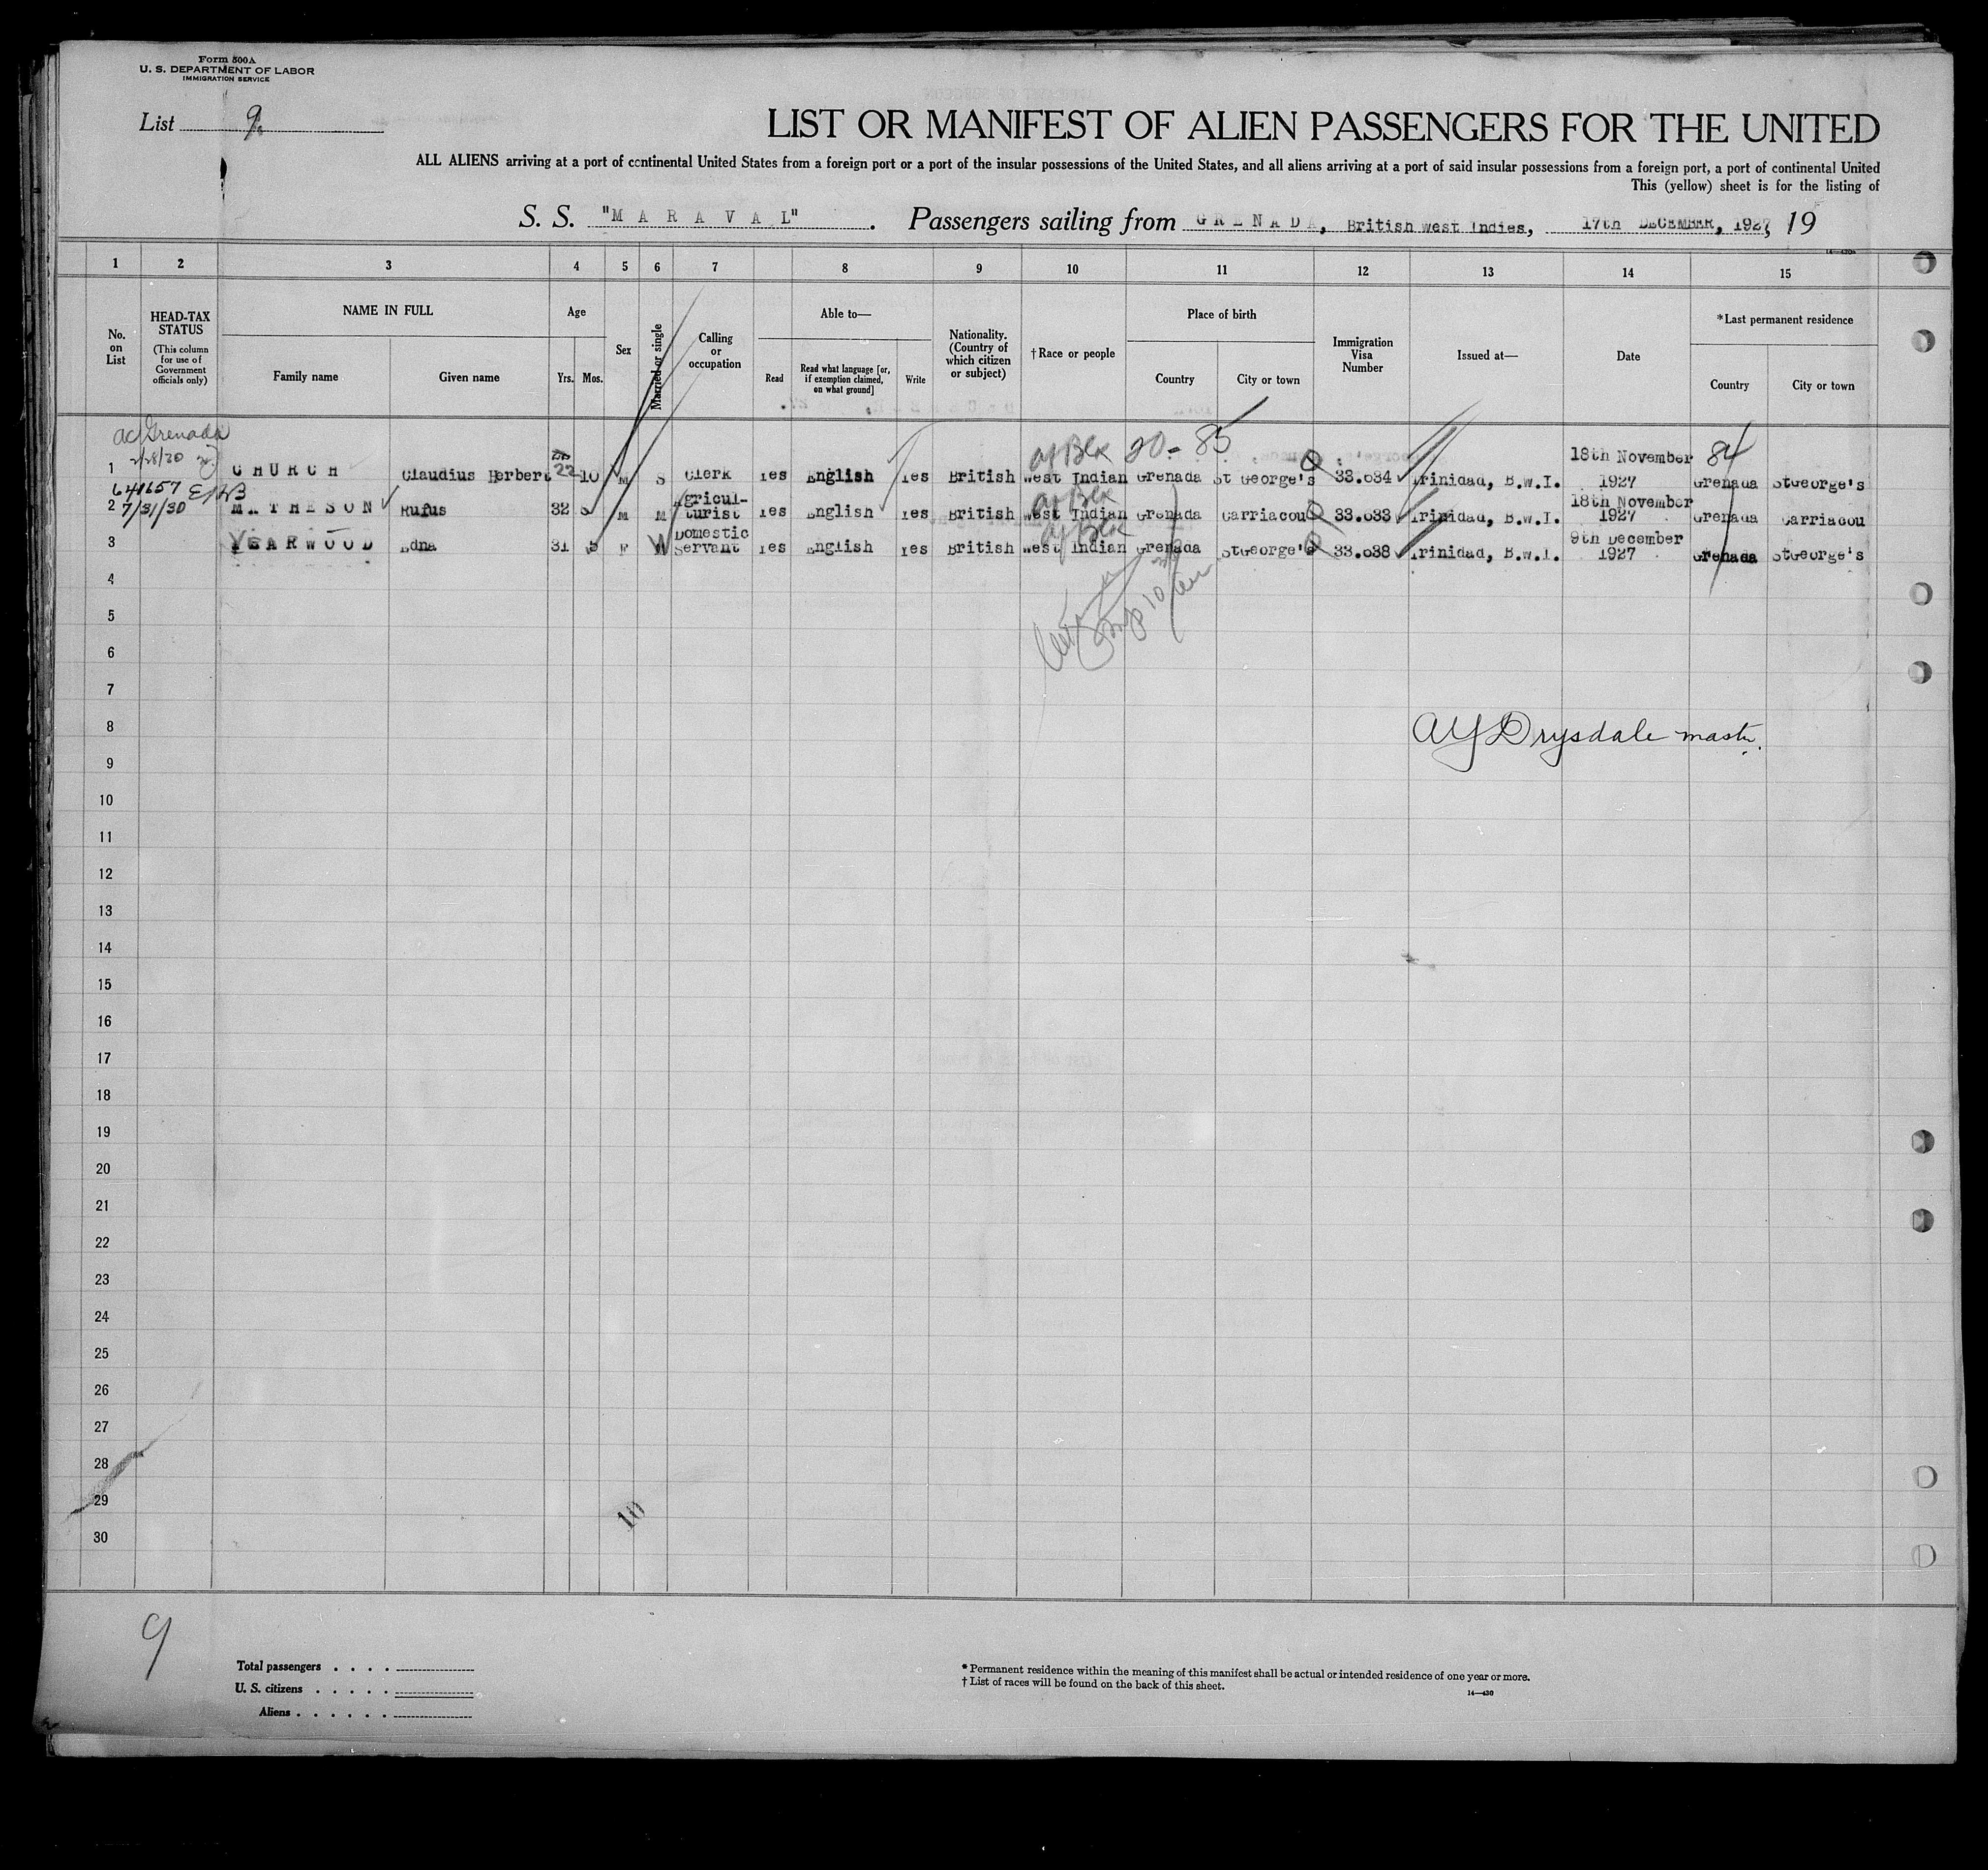 Form 500A
U. S. DEPARTMENT OF LABOR
IMMIGRATION SERVICE
List 9.
LIST OR MANIFEST OF ALIEN PASSENGERS FOR THE UNITED
ALL ALIENS arriving at a port of continental United States from a foreign port or a port of the insular possessions of the United States, and all aliens arriving at a port of said insular possessions from a foreign port, a port of continental United
This (yellow) sheet is for the listing of
S. S. "MARAVAL". Passengers sailing from GRENADA, British West Indies, 17th DECEMBER, 1927, 19
14—430
1 2 3 4 5 6 7 8 9 10 11 12 13 14 15
No. on List
HEAD-TAX STATUS (This column for use of Government officials only)
NAME IN FULL
Family name
Given name
Age
Yrs. Mos.
Sex
Married or single
Calling or occupation
Able to—
Read
Read what language [or, if exemption claimed, on what ground]
Write
Nationality. (Country of which citizen or subject)
†Race or people
Place of birth
Country
City or town
Immigration Visa Number
Issued at—
Date
*Last permanent residence
Country
City or town
ac/Grenada
2/28/30
af Blk 20-85
84
1 CHURCH Claudius Herbert 22 10 M S Clerk Yes English Yes British West Indian Grenada St George's 33.034 Trinidad, B.W.I. 18th November 1927 Grenada StGeorge's
641657
7/31/30
af Blk
2 MATHESON Rufus 32 M M Agricul-turist Yes English Yes British West Indian Grenada Carriacou 33.033 Trinidad, B.W.I. 18th November 1927 Grenada Carriacou
af Blk
3 YEARWOOD Edna 31 5 F W Domestic Servant Yes English Yes British West Indian Grenada StGeorge's 33.038 Trinidad, B.W.I. 9th December 1927 Grenada StGeorge's
4
5
6
7
8
AY Drysdale master.
9
10
11
12
13
14
15
16
17
18
19
20
21
22
23
24
25
26
27
28
29
30
10
9
Total passengers . . . .
U. S. citizens . . . . .
Aliens . . . . . .
* Permanent residence within the meaning of this manifest shall be actual or intended residence of one year or more.
† List of races will be found on the back of this sheet.
14—430